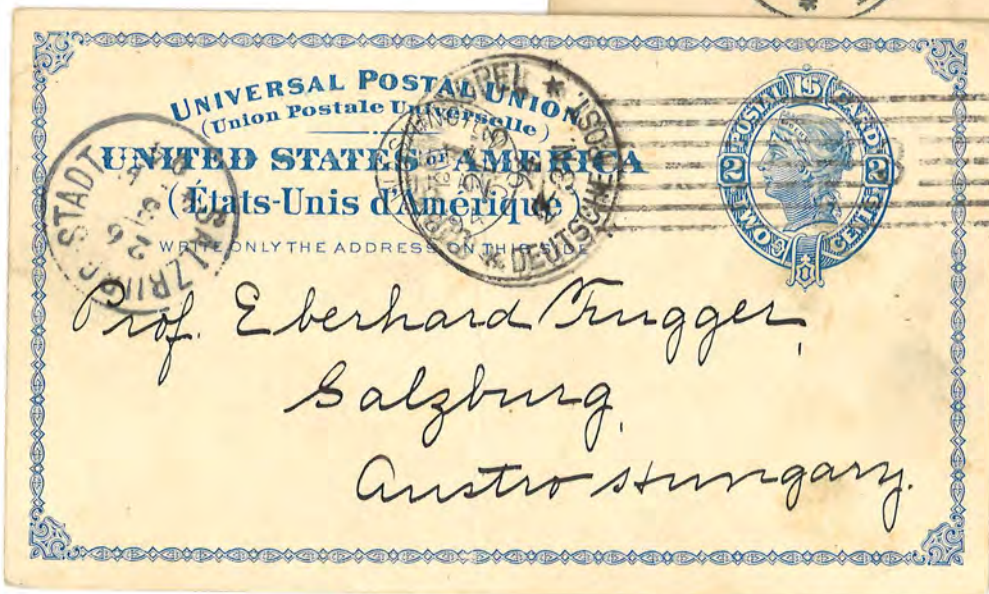 UNIVERSAL POSTAL UNION
(Union Postale Universelle)
UNITED STATES OF AMERICA
(États-Unis d'Amérique)
WRITE ONLY THE ADDRESS ON THIS SIDE
POSTAL CARD
2 2
TWO CENTS
STADT
DEUTSCHE
Prof. Eberhard Fugger,
Salzburg,
Austro Hungary.